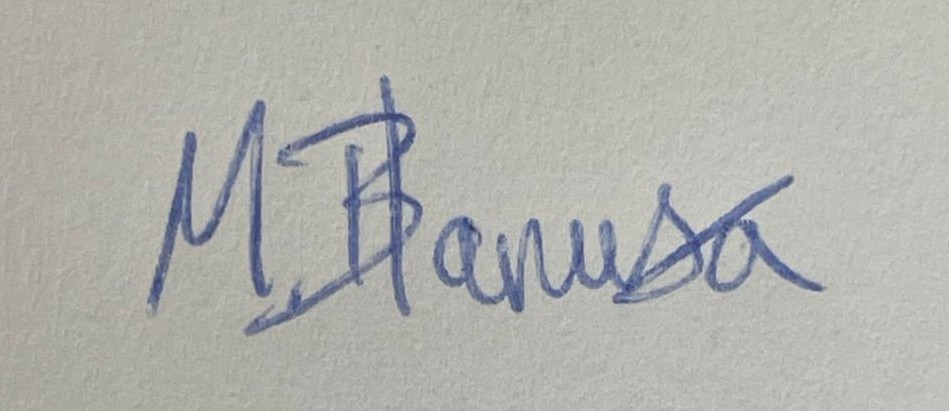 M. Banusa